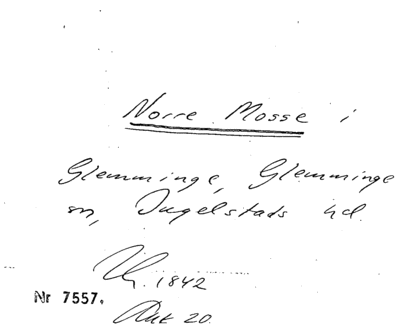 Norre Mosse i
Glemminge, Glemminge
sn, Ingelstads hd.
Th. 1842
Nr 7557.
Akt 20.